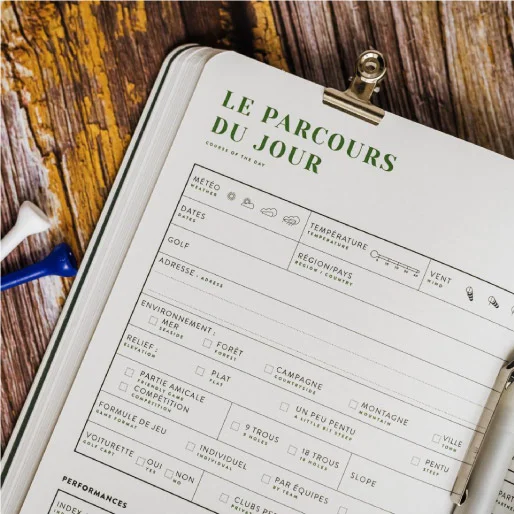 LE PARCOURS
DU JOUR
COURSE OF THE DAY
MÉTÉO
WEATHER
TEMPÉRATURE
TEMPERATURE
VENT
WIND
DATES
DATES
RÉGION/PAYS
REGION • COUNTRY
GOLF
ADRESSE • ADRESS
ENVIRONNEMENT :
MER
SEASIDE
FORÊT
FOREST
CAMPAGNE
COUNTRYSIDE
MONTAGNE
MOUNTAIN
VILLE
TOWN
RELIEF :
ELEVATION
PLAT
FLAT
UN PEU PENTU
A LITTLE BIT STEEP
PENTU
STEEP
PARTIE AMICALE
FRIENDLY GAME
COMPÉTITION
COMPETITION
9 TROUS
9 HOLES
18 TROUS
18 HOLES
SLOPE
FORMULE DE JEU
GAME FORMAT
INDIVIDUEL
INDIVIDUAL
PAR ÉQUIPES
BY TEAM
VOITURETTE
GOLF CART
OUI
YES
NON
NO
CLUBS
PERFORMANCES
INDEX